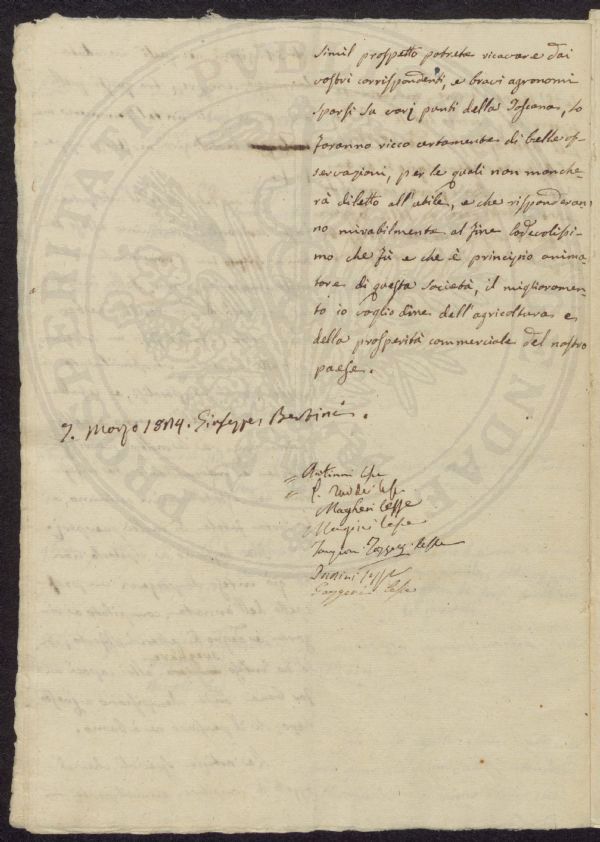 simil prospetto potrete ricavare dai
vostri corrispondenti, e bravi agronomi
sparsi su varj punti della Toscana, lo
faranno ricco certamente di belle os-
servazioni, per le quali non manche-
rà diletto all'utile, e che risponderan-
no mirabilmente al fine lodevolissi-
mo che fù e che è principio anima-
tore di questa società, il miglioramen-
to io voglio dire dell'agricoltura e
della prosperità commerciale del nostro
paese.
7. Marzo 1814. Giuseppe Bertini.
Magheri lesse
Targioni Tozzetti lesse
lesse
lesse
PROSPERITATI PUB